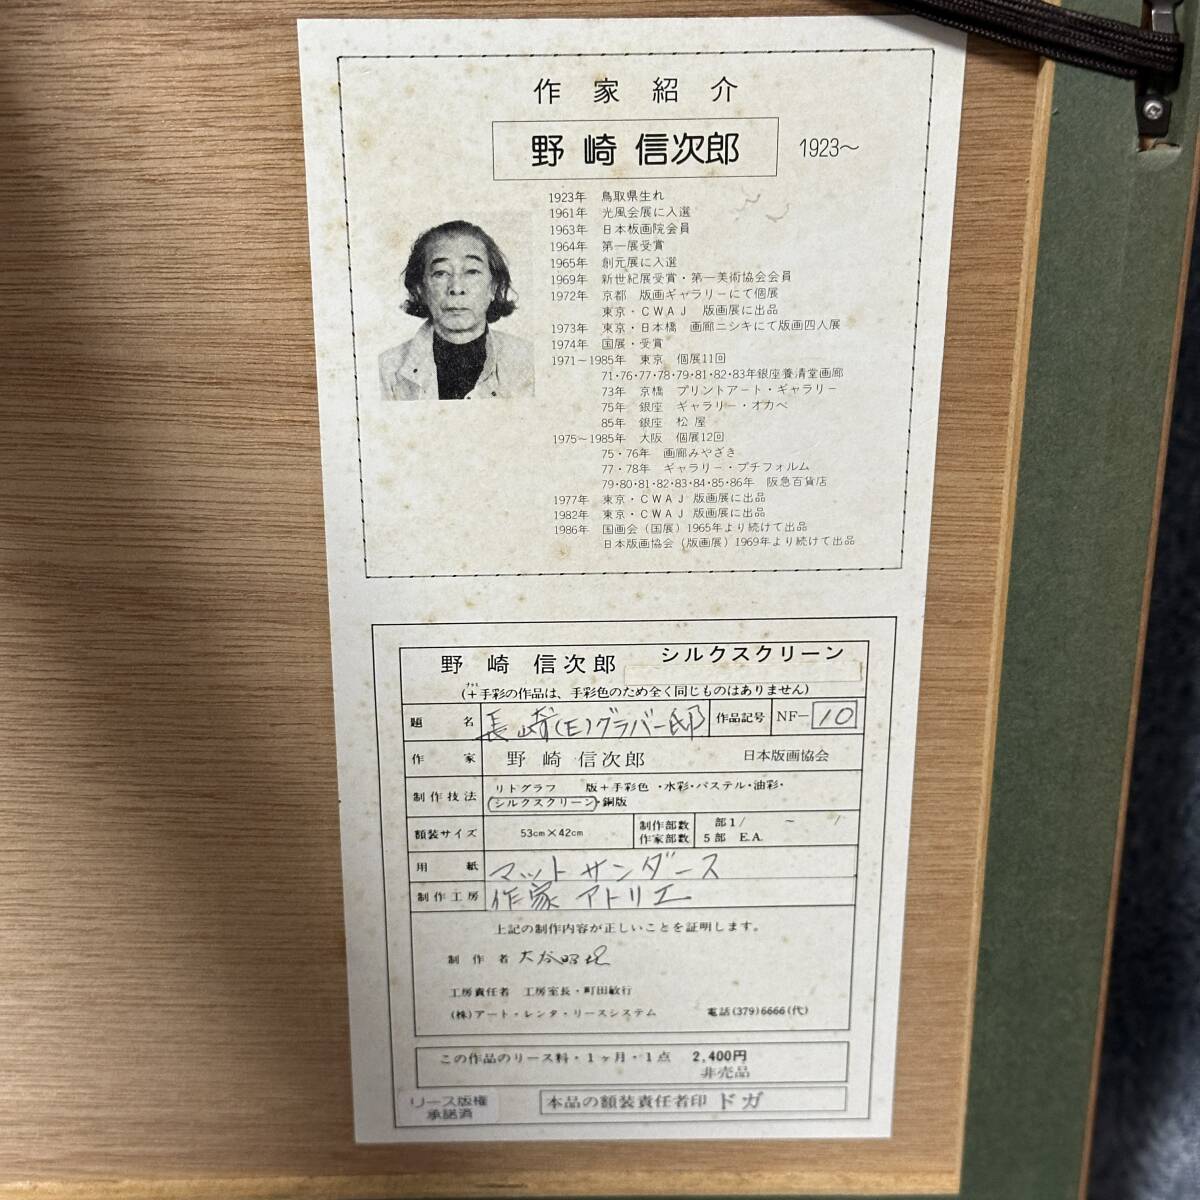 作家紹介
野崎 信次郎 1923～
1923年 鳥取県生れ
1961年 光風会展に入選
1963年 日本板画院会員
1964年 第一展受賞
1965年 創元展に入選
1969年 新世紀展受賞・第一美術協会会員
1972年 京都 版画ギャラリーにて個展
東京・CWAJ 版画展に出品
1973年 東京・日本橋 画廊ニシキにて版画四人展
1974年 国展・受賞
1971～1985年 東京 個展11回
71・76・77・78・79・81・82・83年銀座養清堂画廊
73年 京橋 プリントアート・ギャラリー
75年 銀座 ギャラリー・オカベ
85年 銀座 松屋
1975～1985年 大阪 個展12回
75・76年 画廊みやざき
77・78年 ギャラリー・プチフォルム
79・80・81・82・83・84・85・86年 阪急百貨店
1977年 東京・CWAJ 版画展に出品
1982年 東京・CWAJ 版画展に出品
1986年 国画会（国展）1965年より続けて出品
日本版画協会（版画展）1969年より続けて出品
野崎 信次郎 シルクスクリーン
(+手彩の作品は、手彩色のため全く同じものはありません)
題名 長崎(E)グラバー邸 作品記号 NF-10
作家 野崎 信次郎 日本版画協会
制作技法 リトグラフ 版+手彩色・水彩・パステル・油彩・
シルクスクリーン・銅版
額装サイズ 53cm×42cm 制作部数 部1/ ～ /
作家部数 5部 E.A.
用紙 マットサンダース
制作工房 作家 アトリエ
上記の制作内容が正しいことを証明します。
制作者
工房責任者 工房室長・町田敏行
(株)アート・レンタ・リースシステム 電話(379)6666(代)
この作品のリース料・1ヶ月・1点 2,400円
非売品
リース版権
承諾済
本品の額装責任者印 ドガ